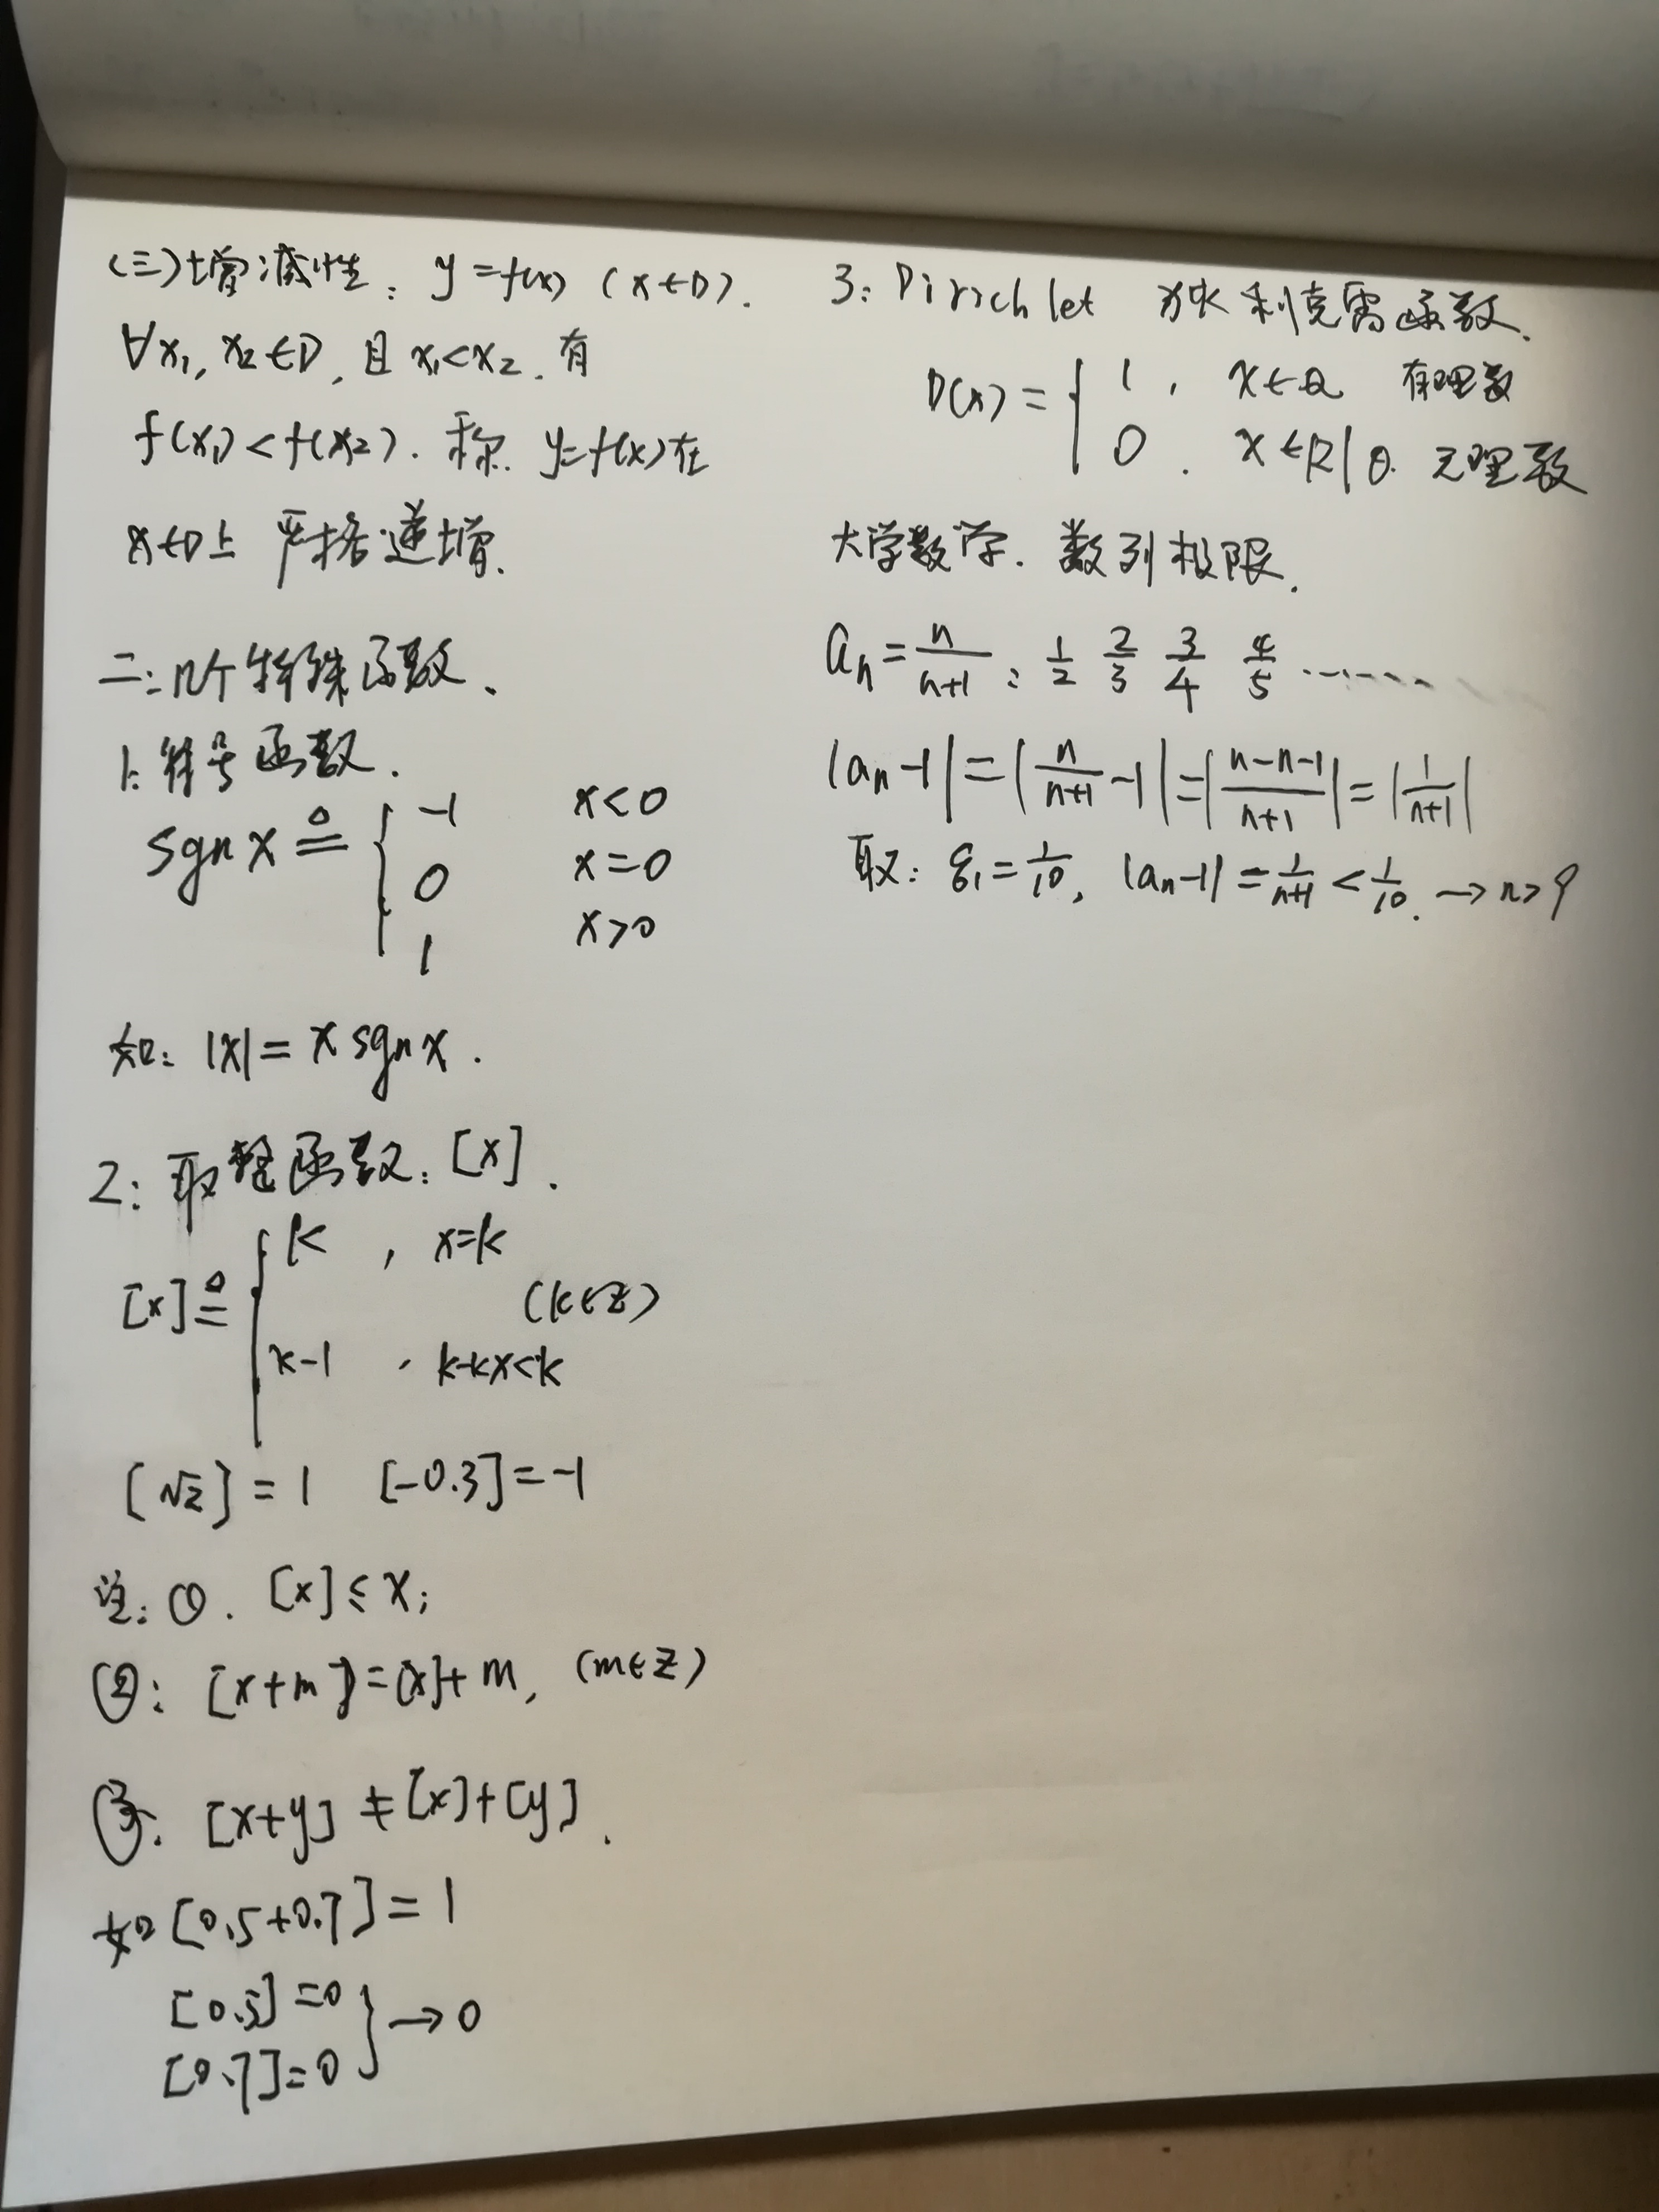 (三)增减性: y=f(x) (x∈D).
∀x₁, x₂∈D, 且 x₁<x₂. 有
f(x₁)<f(x₂). 称. y=f(x)在
x∈D上 严格递增.
二: 几个特殊函数.
1: 符号函数.
sgn x ≜ { -1 x<0
0 x=0
1 x>0
如: |x| = x sgn x.
2: 取整函数: [x].
[x] ≜ { k , x=k
(k∈Z)
k-1 , k-1<x<k
[√2] = 1 [-0.3] = -1
注: ①. [x] ≤ x;
②: [x+m] = [x]+m, (m∈Z)
③: [x+y] ≠ [x]+[y].
如 [0.5+0.7] = 1
[0.5] = 0
[0.7] = 0 } → 0
3: Dirichlet 狄利克雷函数.
D(x) = { 1 , x∈Q 有理数
0 . x∈R|Q. 无理数
大学数学. 数列极限.
aₙ = n/(n+1) : 1/2 2/3 3/4 4/5 ……
|aₙ-1| = |n/(n+1) - 1| = |(n-n-1)/(n+1)| = |1/(n+1)|
取: ε₁ = 1/10, |aₙ-1| = 1/(n+1) < 1/10. → n>9